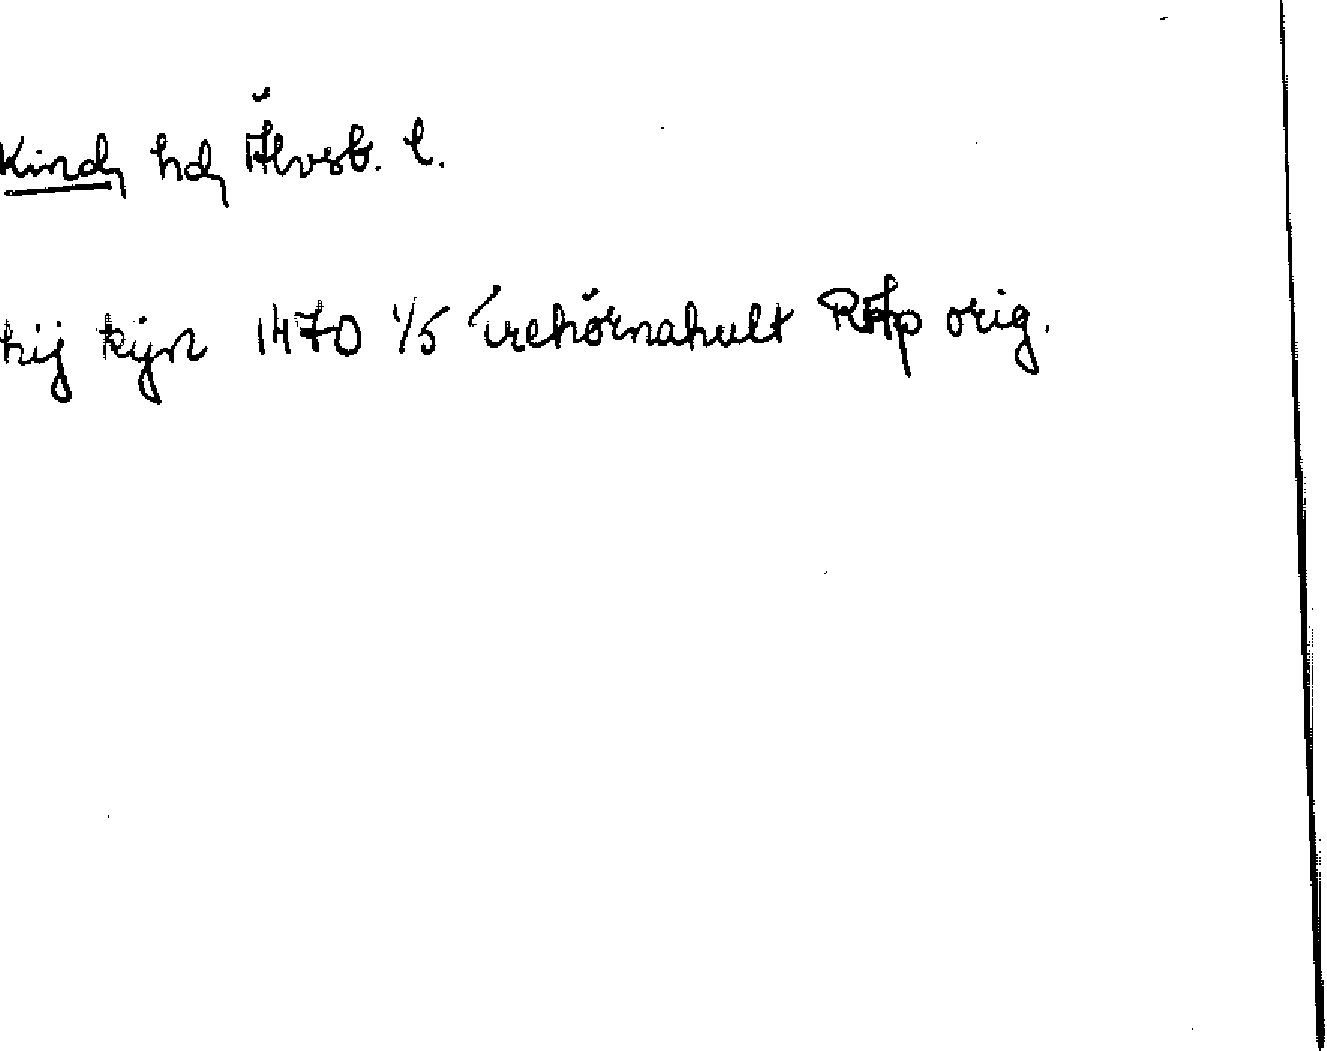 Kind, hd, Älvsb. l.
hij kijn 1470 1/5 Örehörnahult RAp orig.